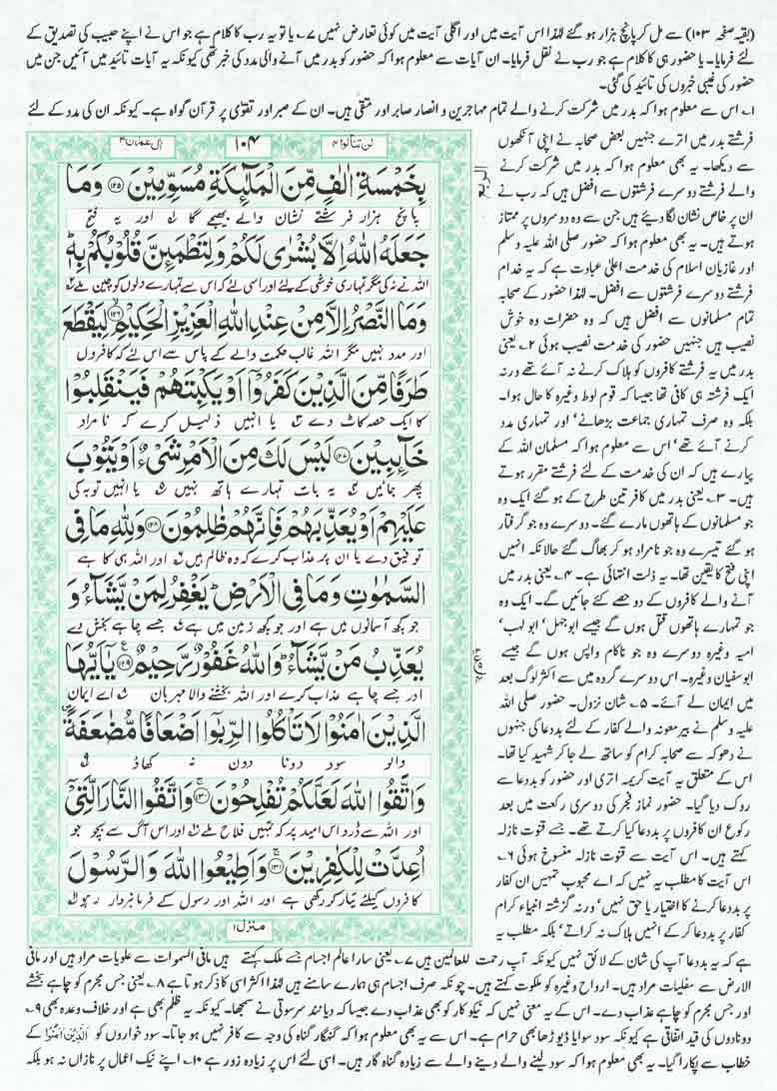 (بقیہ صفحہ ۱۰۳) سے مل کر پانچ ہزار ہو گئے لہٰذا اس آیت میں اور اگلی آیت میں کوئی تعارض نہیں ۷؎ یا تو یہ رب کا کلام ہے جو اس نے اپنے حبیب کی تصدیق کے
لئے فرمایا۔ یا حضور ہی کا کلام ہے جو رب نے نقل فرمایا۔ ان آیات سے معلوم ہوا کہ حضور کو بدر میں آنے والی مدد کی خبر تھی کیونکہ یہ آیات تائید میں آئیں جن میں
حضور کی غیبی خبروں کی تائید کی گئی۔
۱؎ اس سے معلوم ہوا کہ بدر میں شرکت کرنے والے تمام مہاجرین و انصار صابر اور متقی ہیں۔ ان کے صبر اور تقویٰ پر قرآن گواہ ہے۔ کیونکہ ان کی مدد کے لئے
فرشتے بدر میں اترے جنہیں بعض صحابہ نے اپنی آنکھوں
سے دیکھا۔ یہ بھی معلوم ہوا کہ بدر میں شرکت کرنے
والے فرشتے دوسرے فرشتوں سے افضل ہیں کہ رب نے
ان پر خاص نشان لگا دیئے ہیں جن سے وہ دوسروں پر ممتاز
ہوتے ہیں۔ یہ بھی معلوم ہوا کہ حضور صلی اللہ علیہ وسلم
اور غازیان اسلام کی خدمت اعلیٰ عبادت ہے کہ یہ خدام
فرشتے دوسرے فرشتوں سے افضل۔ لہٰذا حضور کے صحابہ
تمام مسلمانوں سے افضل ہیں کہ وہ حضرات وہ خوش
نصیب ہیں جنہیں حضور کی خدمت نصیب ہوئی ۲؎ یعنی
بدر میں یہ فرشتے کافروں کو ہلاک کرنے نہ آئے تھے ورنہ
ایک فرشتہ ہی کافی تھا جیسا کہ قوم لوط وغیرہ کا حال ہوا۔
بلکہ وہ صرف تمہاری جماعت بڑھانے' اور تمہاری مدد
کرنے آئے تھے' اس سے معلوم ہوا کہ مسلمان اللہ کے
پیارے ہیں کہ ان کی خدمت کے لئے فرشتے مقرر ہوتے
ہیں۔ ۳؎ یعنی بدر میں کافر تین طرح کے ہو گئے ایک وہ
جو مسلمانوں کے ہاتھوں مارے گئے۔ دوسرے وہ جو گرفتار
ہو گئے تیسرے وہ جو نامراد ہو کر بھاگ گئے حالانکہ انہیں
اپنی فتح کا یقین تھا۔ یہ ذلت انتہائی ہے۔ ۴؎ یعنی بدر میں
آنے والے کافروں کے دو حصے کئے جائیں گے۔ ایک وہ
جو تمہارے ہاتھوں قتل ہوں گے جیسے ابوجہل' ابو لہب'
امیہ وغیرہ دوسرے وہ جو ناکام واپس ہوں گے جیسے
ابوسفیان وغیرہ۔ اس دوسرے گروہ میں سے اکثر لوگ بعد
میں ایمان لے آئے۔ ۵؎ شان نزول۔ حضور صلی اللہ
علیہ وسلم نے بیر معونہ والے کفار کے لئے بددعا کی جنہوں
نے دھوکہ سے صحابہ کرام کو ساتھ لے جا کر شہید کیا تھا۔
اس کے متعلق یہ آیت کریمہ اتری اور حضور کو بددعا سے
روک دیا گیا۔ حضور نماز فجر کی دوسری رکعت میں بعد
رکوع ان کافروں پر بددعا کیا کرتے تھے۔ جسے قنوت نازلہ
کہتے ہیں۔ اس آیت سے قنوت نازلہ منسوخ ہوئی ۶؎
اس آیت کا مطلب یہ نہیں کہ اے محبوب تمہیں ان کفار
پر بددعا کرنے کا اختیار یا حق نہیں' ورنہ گزشتہ انبیاء کرام
کفار پر بددعا کر کے انہیں ہلاک نہ کراتے' بلکہ مطلب یہ
ال عمران ۳
۱۰۴
لن تنالوا ۴
بِخَمْسَةِ اٰلٰفٍ مِّنَ الْمَلٰٓئِكَةِ مُسَوِّمِيْنَ ۱۲۵ وَمَا
پانچ ہزار فرشتے نشان والے بھیجے گا لہ اور یہ فتح
جَعَلَهُ اللّٰهُ اِلَّا بُشْرٰى لَكُمْ وَلِتَطْمَئِنَّ قُلُوْبُكُمْ بِهٖ
اللہ نے نہ کی مگر تمہاری خوشی کے لئے اور اسی لئے کہ اس سے تمہارے دلوں کو چین ملے
وَمَا النَّصْرُ اِلَّا مِنْ عِنْدِ اللّٰهِ الْعَزِيْزِ الْحَكِيْمِ ۱۲۶ لِيَقْطَعَ
اور مدد نہیں مگر اللہ غالب حکمت والے کے پاس سے اس لئے کہ کافروں
طَرَفًا مِّنَ الَّذِيْنَ كَفَرُوْٓا اَوْ يَكْبِتَهُمْ فَيَنْقَلِبُوْا
کا ایک حصہ کاٹ دے یا انہیں ذلیل کرے کہ نا مراد
خَآئِبِيْنَ ۱۲۷ لَيْسَ لَكَ مِنَ الْاَمْرِ شَيْءٌ اَوْ يَتُوْبَ
پھر جائیں یہ بات تمہارے ہاتھ نہیں یا انہیں توبہ کی
عَلَيْهِمْ اَوْ يُعَذِّبَهُمْ فَاِنَّهُمْ ظٰلِمُوْنَ ۱۲۸ وَلِلّٰهِ مَا فِي
توفیق دے یا ان پر عذاب کرے کہ وہ ظالم ہیں اور اللہ ہی کا ہے
السَّمٰوٰتِ وَمَا فِي الْاَرْضِ يَغْفِرُ لِمَنْ يَّشَآءُ وَ
جو کچھ آسمانوں میں ہے اور جو کچھ زمین میں ہے جسے چاہے بخش دے
يُعَذِّبُ مَنْ يَّشَآءُ وَاللّٰهُ غَفُوْرٌ رَّحِيْمٌ ۱۲۹ يٰٓاَيُّهَا
اور جسے چاہے عذاب کرے اور اللہ بخشنے والا مہربان اے ایمان
الَّذِيْنَ اٰمَنُوْا لَا تَاْكُلُوا الرِّبٰٓوا اَضْعَافًا مُّضٰعَفَةً
والو سود دونا دون نہ کھاؤ
وَاتَّقُوا اللّٰهَ لَعَلَّكُمْ تُفْلِحُوْنَ ۱۳۰ وَاتَّقُوا النَّارَ الَّتِيْٓ
اور اللہ سے ڈرو اس امید پر کہ تمہیں فلاح ملے اور اس آگ سے بچو جو
اُعِدَّتْ لِلْكٰفِرِيْنَ ۱۳۱ وَاَطِيْعُوا اللّٰهَ وَالرَّسُوْلَ
کافروں کیلئے تیار کر رکھی ہے اور اللہ اور رسول کے فرمانبردار رہو
منزل ۱
ہے کہ یہ بددعا آپ کی شان کے لائق نہیں کیونکہ آپ رحمت للعالمین ہیں ۷؎ یعنی سارا عالم اجسام جسے ملک کہتے ہیں مافی السموات سے علویات مراد ہیں اور مافی
الارض سے سفلیات مراد ہیں۔ ارواح وغیرہ کو ملکوت کہتے ہیں۔ چونکہ صرف اجسام ہی ہمارے سامنے ہیں لہٰذا اکثر اسی کا ذکر ہوتا ہے ۸؎ یعنی جس مجرم کو چاہے بخشے
اور جس مجرم کو چاہے عذاب دے۔ اس کے یہ معنی نہیں کہ نیکو کار کو بھی عذاب دے جیسا کہ دیانند سرسوتی نے سمجھا۔ کیونکہ یہ ظلم بھی ہے اور خلاف وعدہ بھی ۹؎
دونا دون کی قید اتفاقی ہے کیونکہ سود سوایا ڈیوڑھا بھی حرام ہے۔ اس سے یہ بھی معلوم ہوا کہ گنہگار گناہ کی وجہ سے کافر نہیں ہو جاتا۔ سود خواروں کو الَّذِيْنَ اٰمَنُوْا کے
خطاب سے پکارا گیا۔ یہ بھی معلوم ہوا کہ سود لینے والے دینے والے سے زیادہ گناہ گار ہیں۔ اسی لئے اس پر زیادہ زور ہے ۱۰؎ اپنے نیک اعمال پر نازاں نہ ہو بلکہ